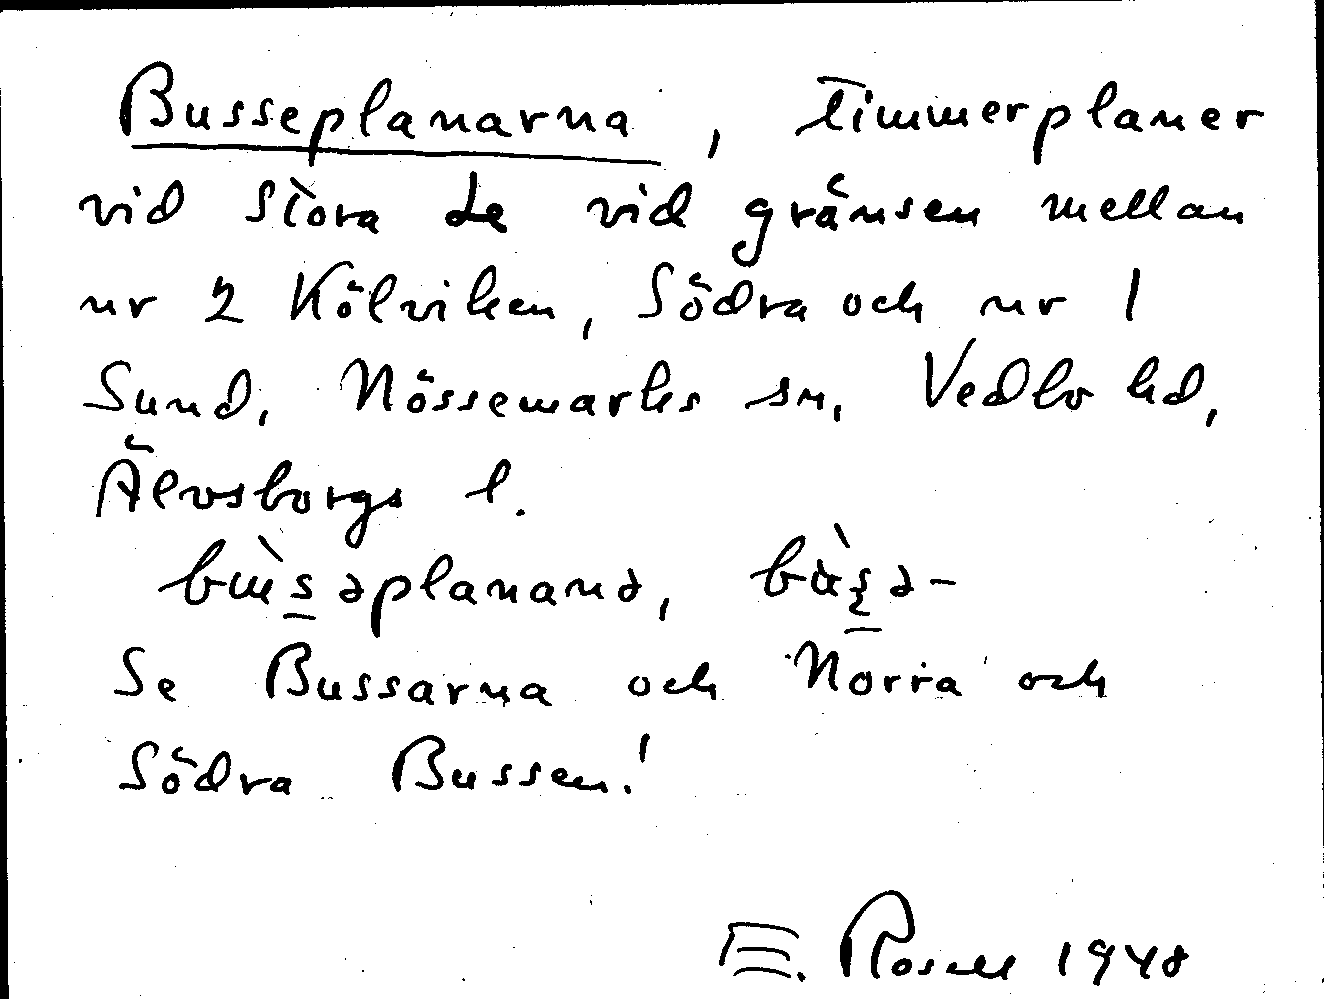 Busseplanarna, timmerplaner
vid Stora Le vid gränsen mellan
nr 2 Kölviken, Södra och nr 1
Sund, Nössemarks sn, Vedbo hd,
Älvsborgs l.
bɯ̀s̲əplananə,
Se Bussarna och Norra och
Södra Bussen!
E. Rosell 1948